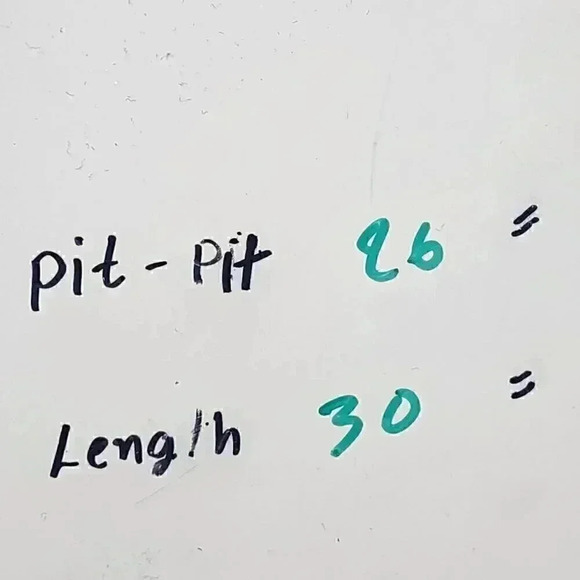 pit - pit 26 "
Length 30 "